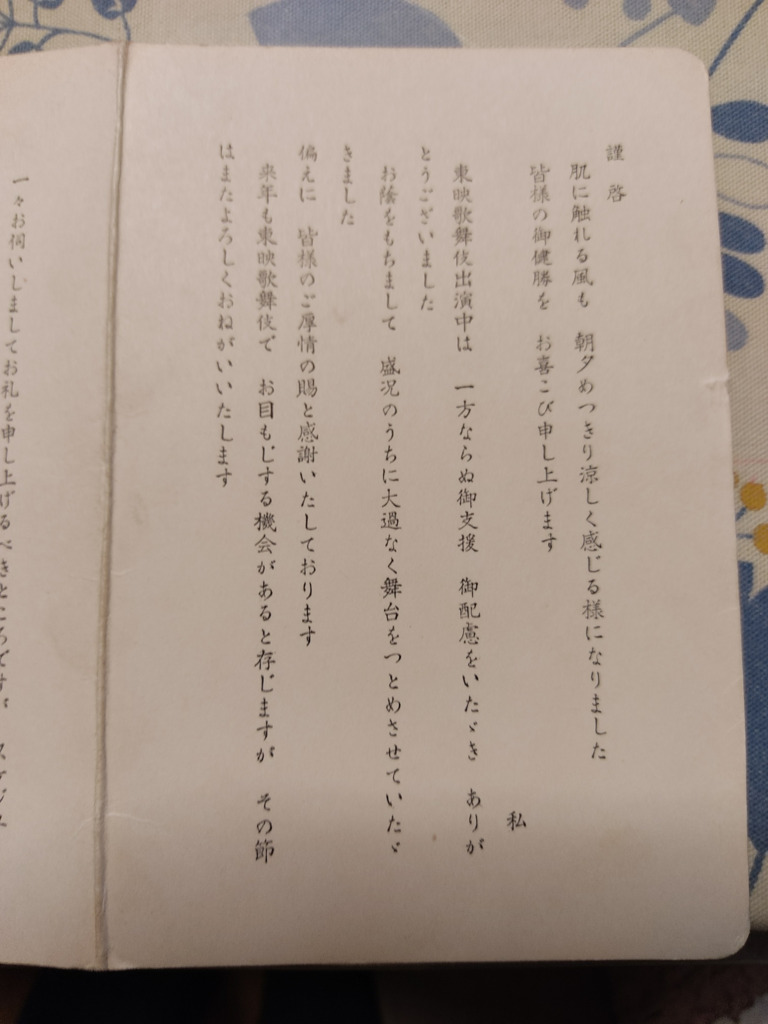 謹啓
肌に触れる風も　朝夕めっきり涼しく感じる様になりました
皆様の御健勝を　お喜こび申し上げます
私
東映歌舞伎出演中は　一方ならぬ御支援　御配慮をいたゞき　ありが
とうございました
お陰をもちまして　盛況のうちに大過なく舞台をつとめさせていたゞ
きました
偏えに　皆様のご厚情の賜と感謝いたしております
来年も東映歌舞伎で　お目もじする機会があると存じますが　その節
はまたよろしくおねがいいたします
一々お伺いしましてお礼を申し上げるべきところですが　スケジュ